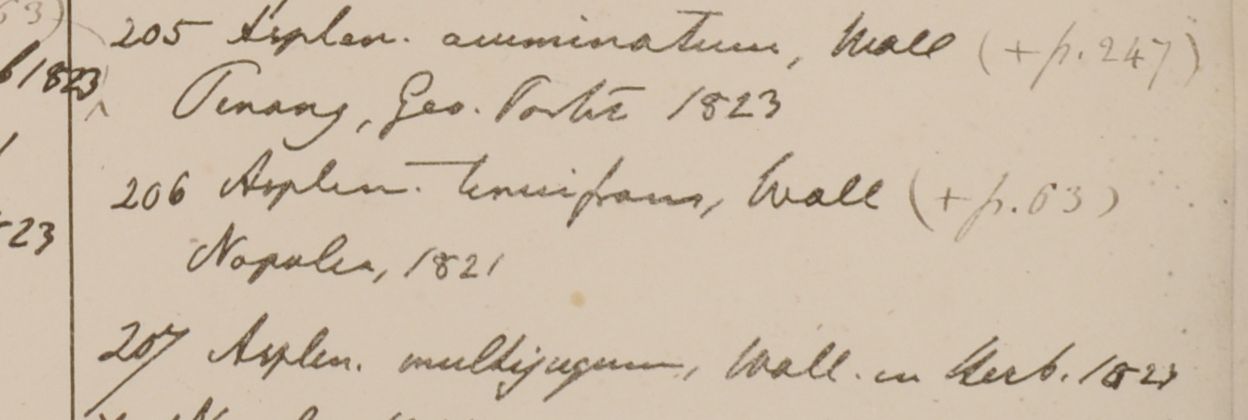 63)
205 Asplen. acuminatum, Wall (+ p. 247)
b 1823
Penang, Geo. Porter 1823
206 Asplen. tenuifrons, Wall (+ p. 63)
23
Napalia, 1821
207 Asplen. multijugum, Wall. in Herb. 1823